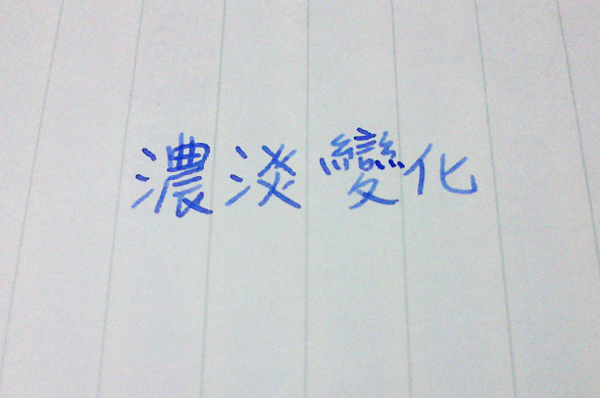 濃淡變化